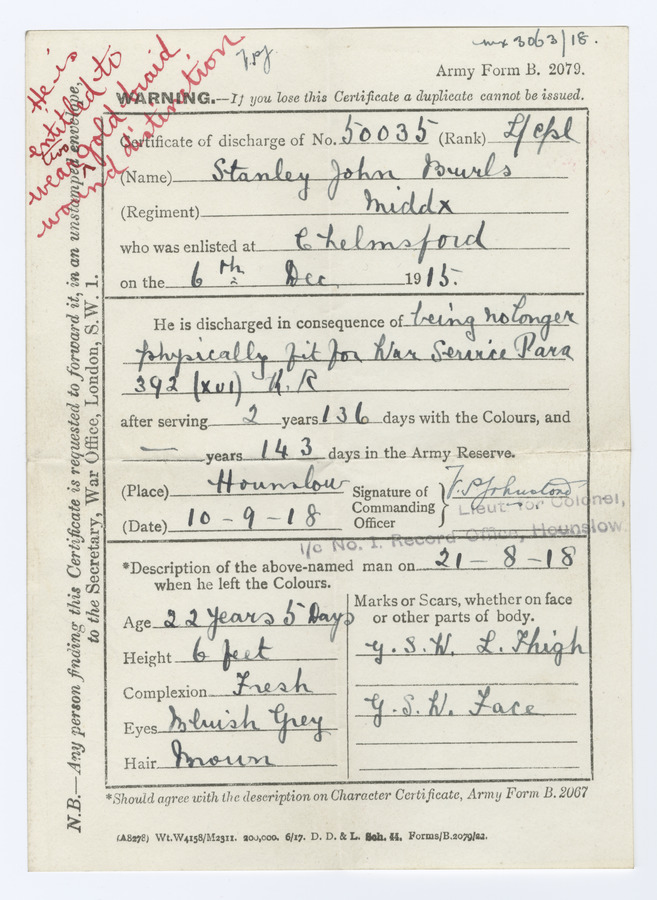 mx 3063/18.
Army Form B. 2079.
He is
entitled to
wear two gold braid
wound distinction
WARNING.—If you lose this Certificate a duplicate cannot be issued.
Certificate of discharge of No. 50035 (Rank) L/cpl
(Name) Stanley John Burls
(Regiment) Middx
who was enlisted at Chelmsford
on the 6th Dec 1915.
He is discharged in consequence of being no longer
physically fit for War Service Para
392 (xvi) K.R
after serving 2 years 136 days with the Colours, and
— years 143 days in the Army Reserve.
(Place) Hounslow
Signature of
Commanding
Officer
Lieut for Colonel,
(Date) 10-9-18
i/c No. 1. Record Office, Hounslow.
*Description of the above-named man on 21-8-18
when he left the Colours.
Age 22 years 5 Days
Height 6 feet
Complexion Fresh
Eyes Bluish Grey
Hair Brown
Marks or Scars, whether on face
or other parts of body.
G.S.W. L. Thigh
G.S.W. Face
*Should agree with the description on Character Certificate, Army Form B. 2067
(A8278) Wt.W4158/M2311. 200,000. 6/17. D. D. & L. Sch. 44. Forms/B.2079/22.
N.B.—Any person finding this Certificate is requested to forward it, in an unstamped envelope,
to the Secretary, War Office, London, S.W. 1.